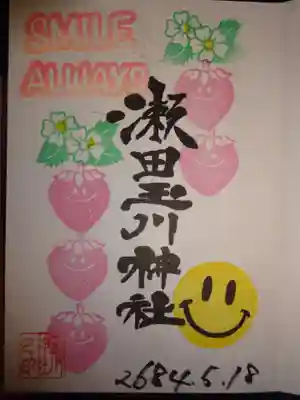 SMILE
ALWAYS
瀬田玉川神社
2684.5.18